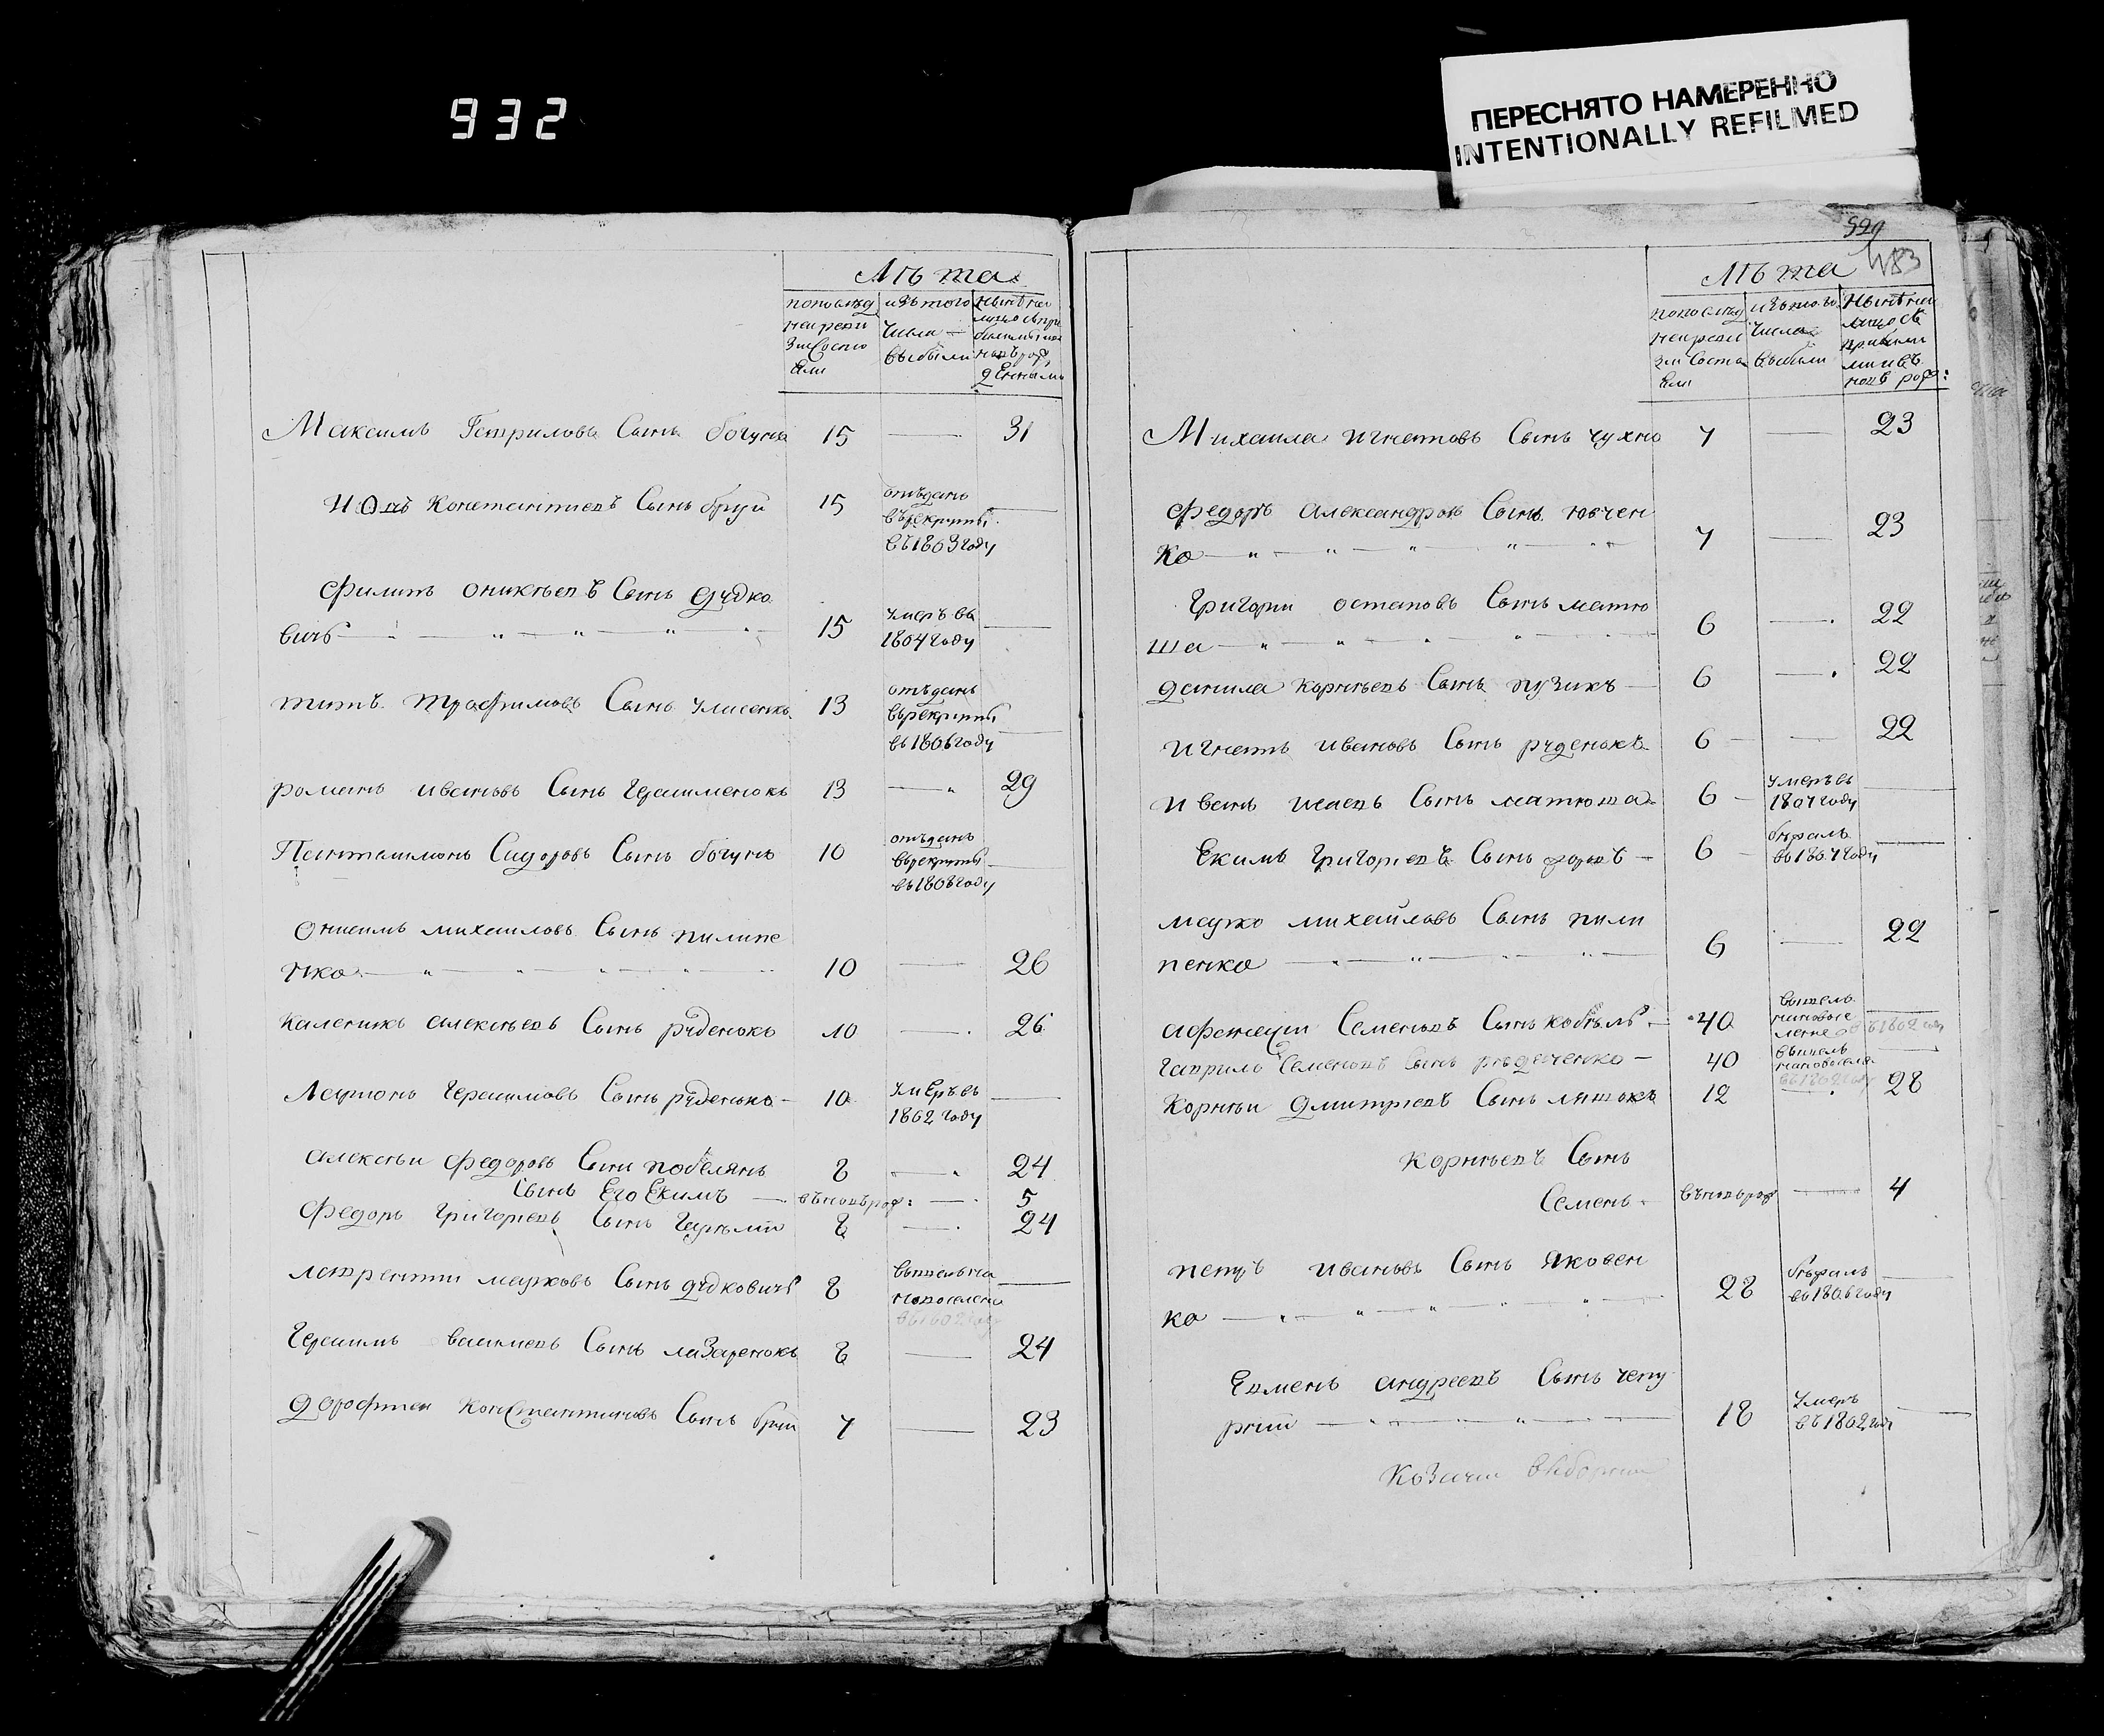 932
ПЕРЕСНЯТО НАМЕРЕННО
INTENTIONALLY REFILMED
Лѣта
попослѣд изътого нынѣ на
ней реви числа лицо съпри
зіи состо выбыли
яли
Максимъ Гавриловъ Сынъ богунъ 15 — 31
Константиевъ Сынъ бруй 15 отъданъ
въ рекруты
въ 1803 году
Филипъ оникѣевъ Сынъ дудко
вичъ 15 умеръ въ
1804 году
титъ трофимовъ Сынъ улисенко 13 отъданъ
въ рекруты
въ 1806 году
романъ ивановъ Сынъ герасименокъ 13 — 29
Пантелимонъ Сидоровъ Сынъ богунъ 10 отъданъ
въ рекруты
въ 1808 году
Онисимъ михаиловъ Сынъ пилипе
нко 10 — 26
Каленикъ алексѣевъ Сынъ руденокъ 10 — 26
Ларионъ Герасимовъ Сынъ руденокъ 10 умеръ въ
1802 году
алексѣи федоровъ Сынъ 8 — 24
Сынъ Его Екимъ — въновьрож: — 5
Федоръ Григориевъ Сынъ 8 — 24
лаврентии марковъ Сынъ дудковичъ 8 вышелъ на
новоселение
въ 1802 году
Герасимъ василиевъ Сынъ лазаренокъ 8 — 24
дорофѣи Константиновъ Сынъ бруй 7 — 23
529
483
Лѣта
попослѣд изътого Нынѣ на
ней реви числа лицо съ
зіи Состо выбыли прибыли
яли ми и въ
новь рож:
Михаила игнатовъ Сынъ чухно 7 — 23
Федоръ александровъ Сынъ ювчен
ко 7 — 23
Григори остаповъ Сынъ матю
ша 6 — 22
данила корнѣевъ Сынъ пузикъ — 6 — 22
игнатъ ивановъ Сынъ руденокъ 6 — 22
иванъ исаевъ Сынъ матюша 6 — умеръ въ
1807 году
Екимъ Григориевъ Сынъ — 6 — бѣжалъ
въ 1807 году
марко михайловъ Сынъ пили
пенко 6 — 22
афанасии Семеновъ Сынъ 40 вышелъ
на новосе
ление въ 1802 году
Гаврило Семеновъ Сынъ — 40 вышелъ
на новосел
въ 1802 году
Корнѣи дмитриевъ Сынъ ляшокъ 12 — 28
Корнѣевъ Сынъ
Семенъ въновьрож — 4
петръ ивановъ Сынъ яковен
ко 28 бѣжалъ
въ 1806 году
Евменъ андреевъ Сынъ чепу
рній 18 умеръ
въ 1802 году
Козачій выборный